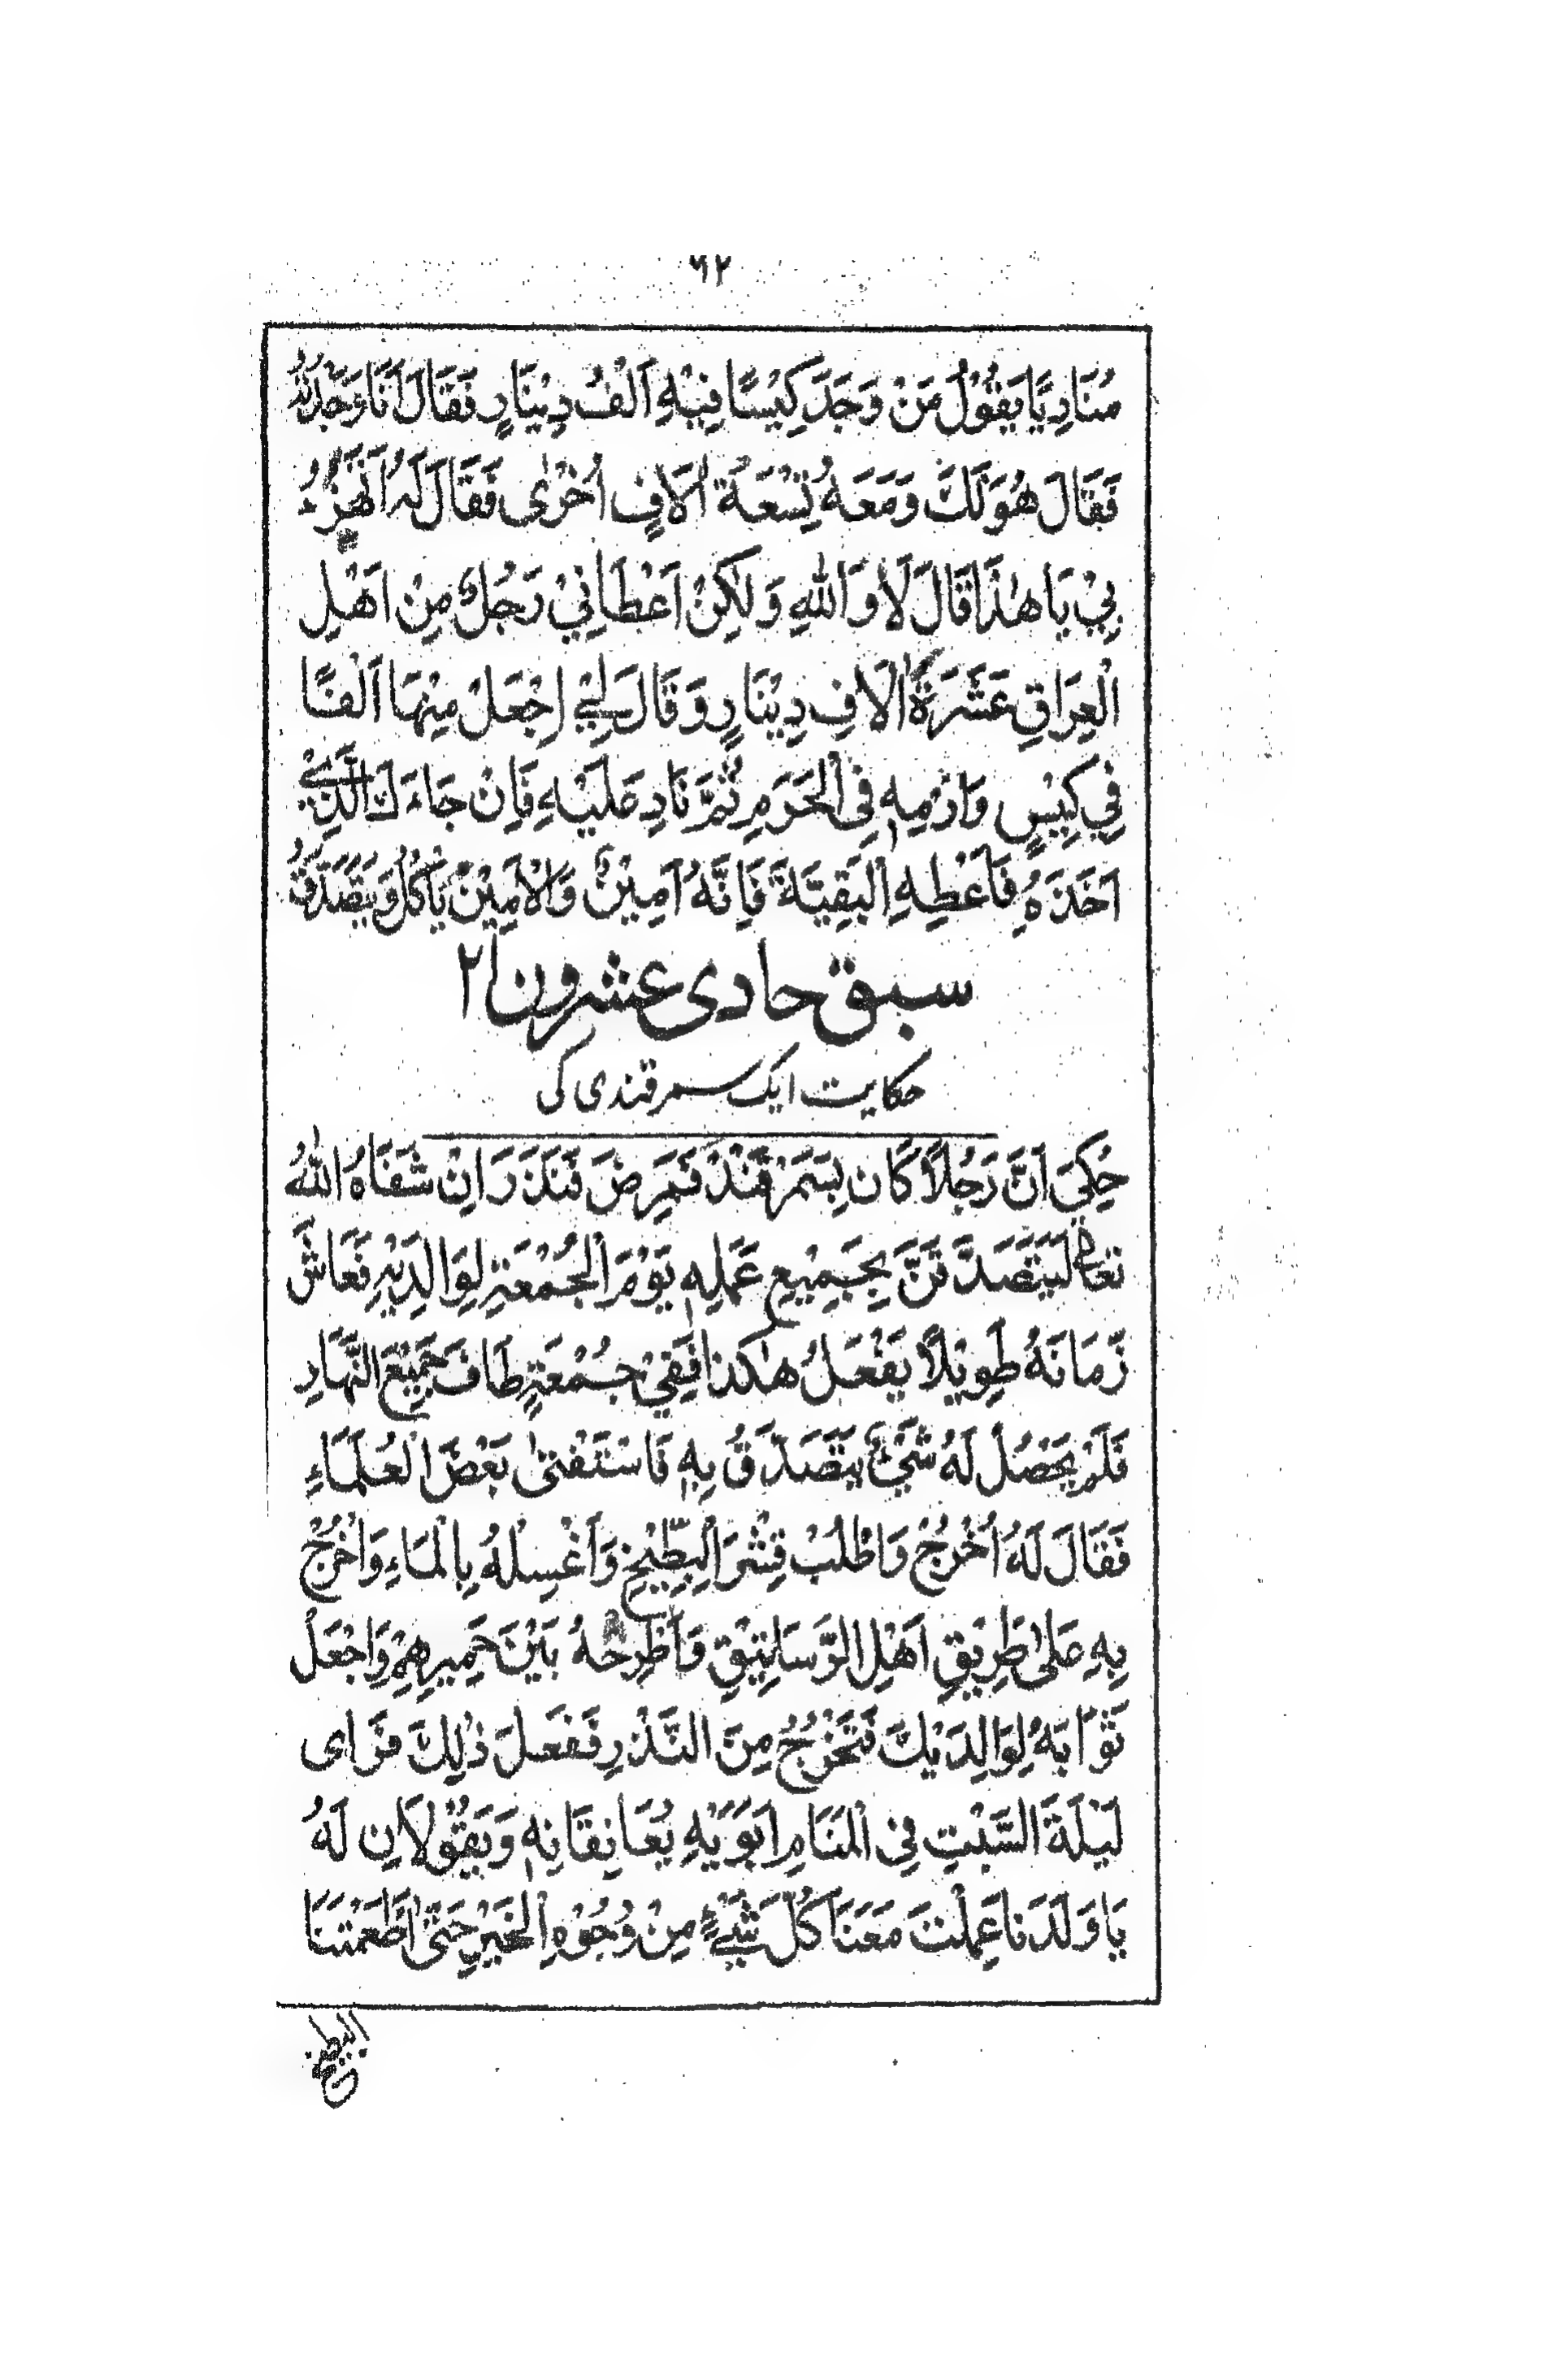 ٦٢
مُنَادِيًا يَقُوْلُ مَنْ وَجَدَ كِيْسًا فِيْهِ اَلْفُ دِيْنَارٍ فَقَالَ اَنَا وَجَدْتُهُ
فَقَالَ هُوَ لَكَ وَمَعَهُ تِسْعَةُ اٰلَافٍ اُخْرٰى فَقَالَ لَهُ اَتَهْزَءُ
بِيْ يَا هٰذَا قَالَ لَا وَاللّٰهِ وَلٰكِنْ اَعْطَانِيْ رَجُلٌ مِنْ اَهْلِ
الْعِرَاقِ عَشَرَةَ اٰلَافِ دِيْنَارٍ وَقَالَ لِيْ اِجْعَلْ مِنْهَا اَلْفًا
فِي كِيْسٍ وَارْمِهٖ فِي الْحَرَمِ ثُمَّ نَادِ عَلَيْهِ فَاِنْ جَاءَكَ الَّذِيْ
اَخَذَهُ فَاَعْطِهِ الْبَقِيَّةَ فَاِنَّهُ اَمِيْنٌ وَالْاَمِيْنُ يَأْكُلُ وَيَتَصَدَّقُ
سبق حادی عشرون ۲۱
حکایت ایک سمرقندی کی
حُكِيَ اَنَّ رَجُلًا كَان بِسَمَرْقَنْدَ فَمَرِضَ فَنَذَرَ اِنْ شَفَاهُ اللّٰهُ
تعالٰى لَيَتَصَدَّقَنَّ بِجَمِيْعِ عَمَلِهٖ يَوْمَ الْجُمُعَةِ لِوَالِدَيْهِ فَعَاشَ
زَمَانَهُ طَوِيْلًا يَفْعَلُ هٰكَذَا فَفِيْ جُمُعَةٍ طَافَ جَمِيْعَ النَّهَارِ
فَلَمْ يَحْصُلْ لَهُ شَيْءٌ يَتَصَدَّقُ بِهٖ فَاسْتَفْتٰى بَعْضَ الْعُلَمَاءِ
فَقَالَ لَهُ اُخْرُجْ وَاطْلُبْ قِشْرَ الْبِطِّيْخِ وَاَغْسِلْهُ بِالْمَاءِ وَاخْرُجْ
بِهِ عَلٰى طَرِيْقِ اَهْلِ الرَّسَاتِيْقِ وَاَطْرِحْهُ بَيْنَ حَمِيرِهِمْ وَاجْعَلْ
ثَوَابَهُ لِوَالِدَيْكَ فَتَخْرُجُ مِنَ النَّذْرِ فَفَعَلَ ذٰلِكَ فَرَاى
لَيْلَةَ السَّبْتِ فِي الْمَنَامِ اَبَوَيْهِ يُعَانِقَانِهٖ وَيَقُوْلَانِ لَهُ
يَا وَلَدَنَا عَمِلْتَ مَعَنَا كُلَّ شَيْءٍ مِنْ وُجُوْهِ الْخَيْرِ حَتّٰى اَطْعَمْتَنَا
البطيخ